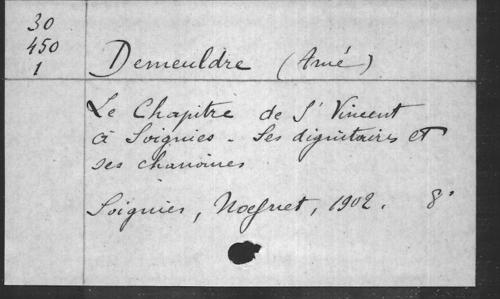 30
450
1
Demeuldre (Amé)
Le Chapitre de St Vincent
à Soignies - Ses dignitaires et
ses chanoines
Soignies, Noefnet, 1902. 8°